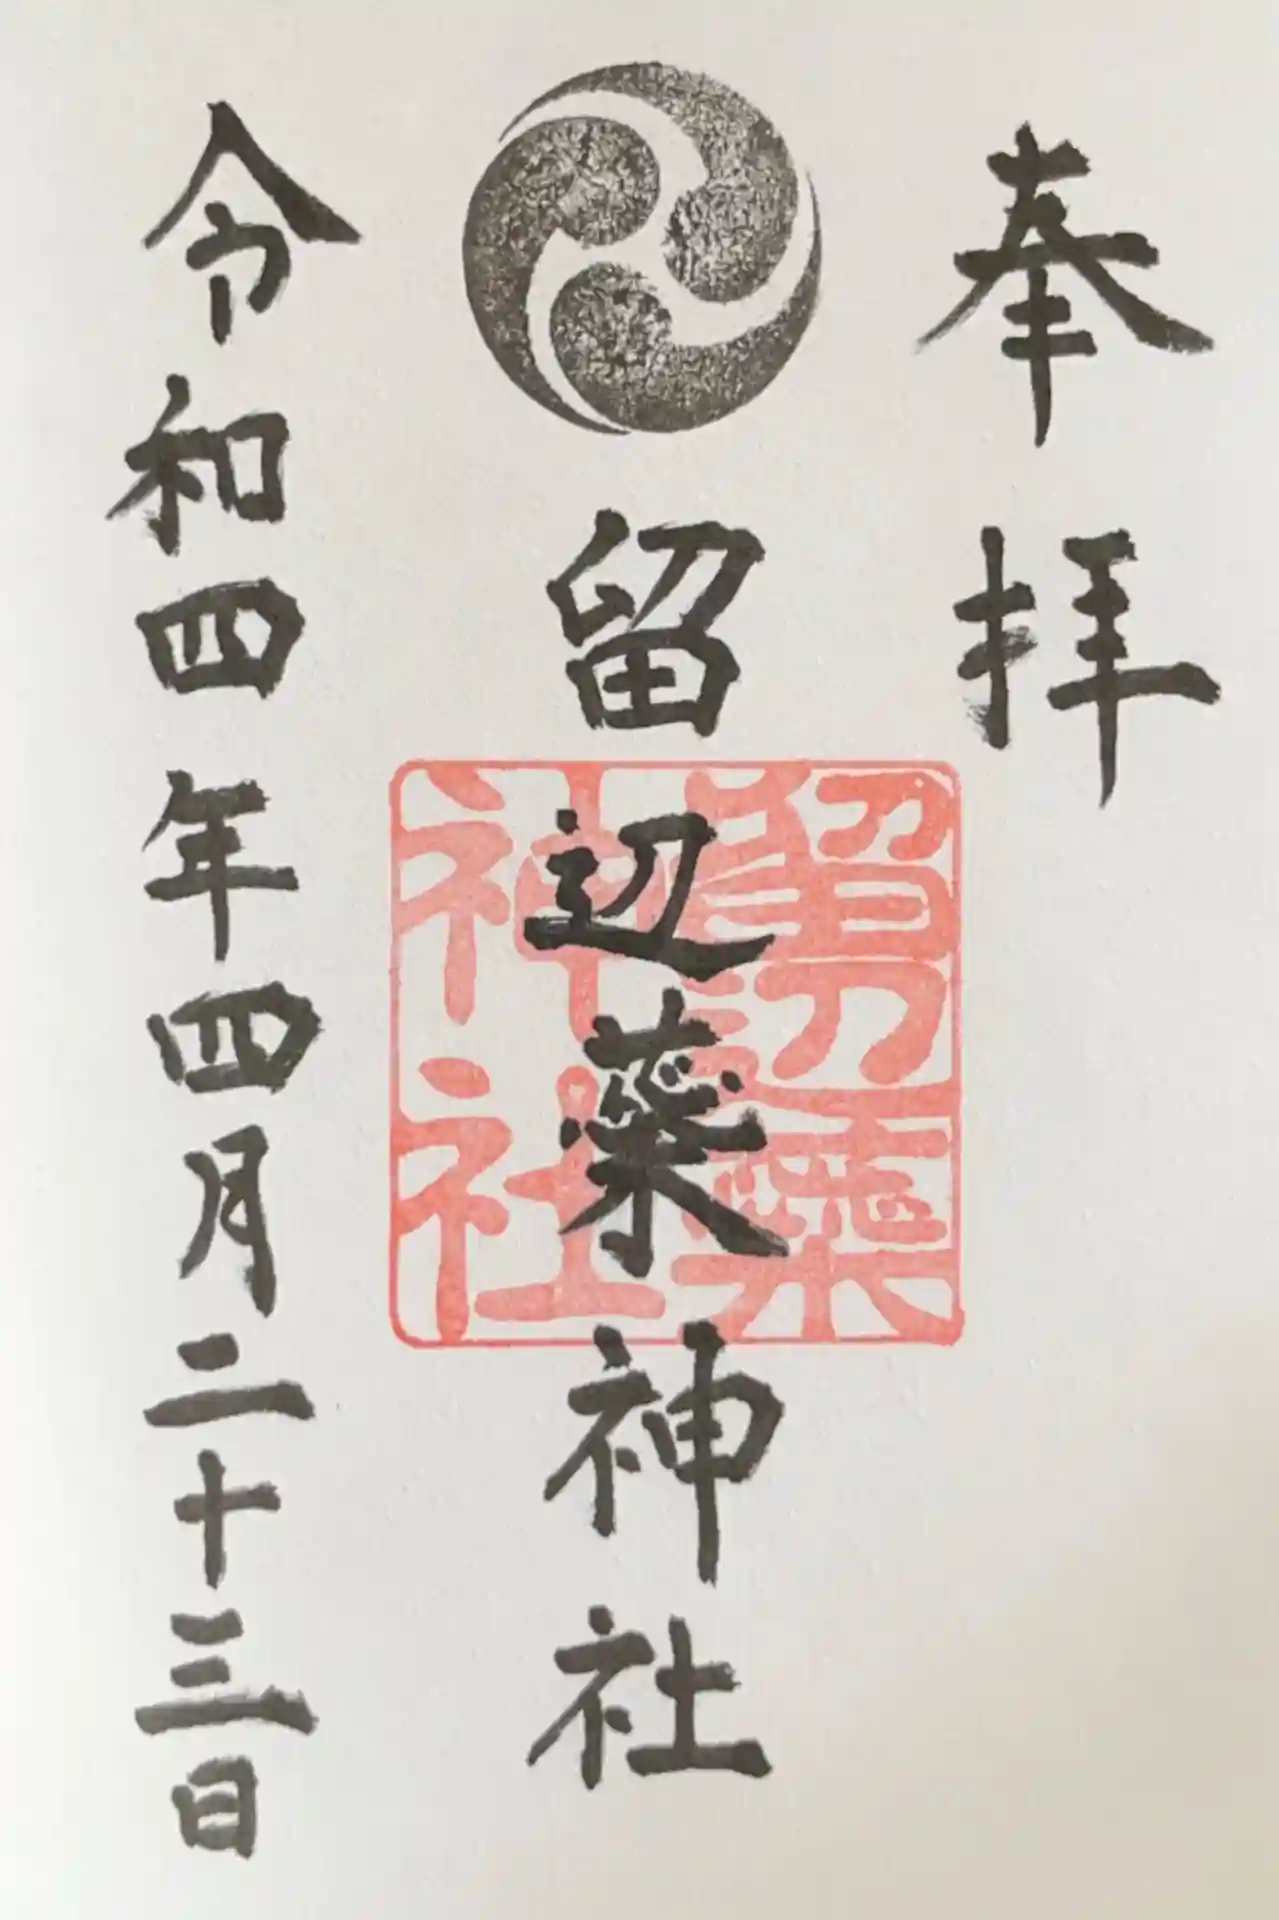 奉拝
留辺蘂神社
留辺蘂
神社
令和四年四月二十三日